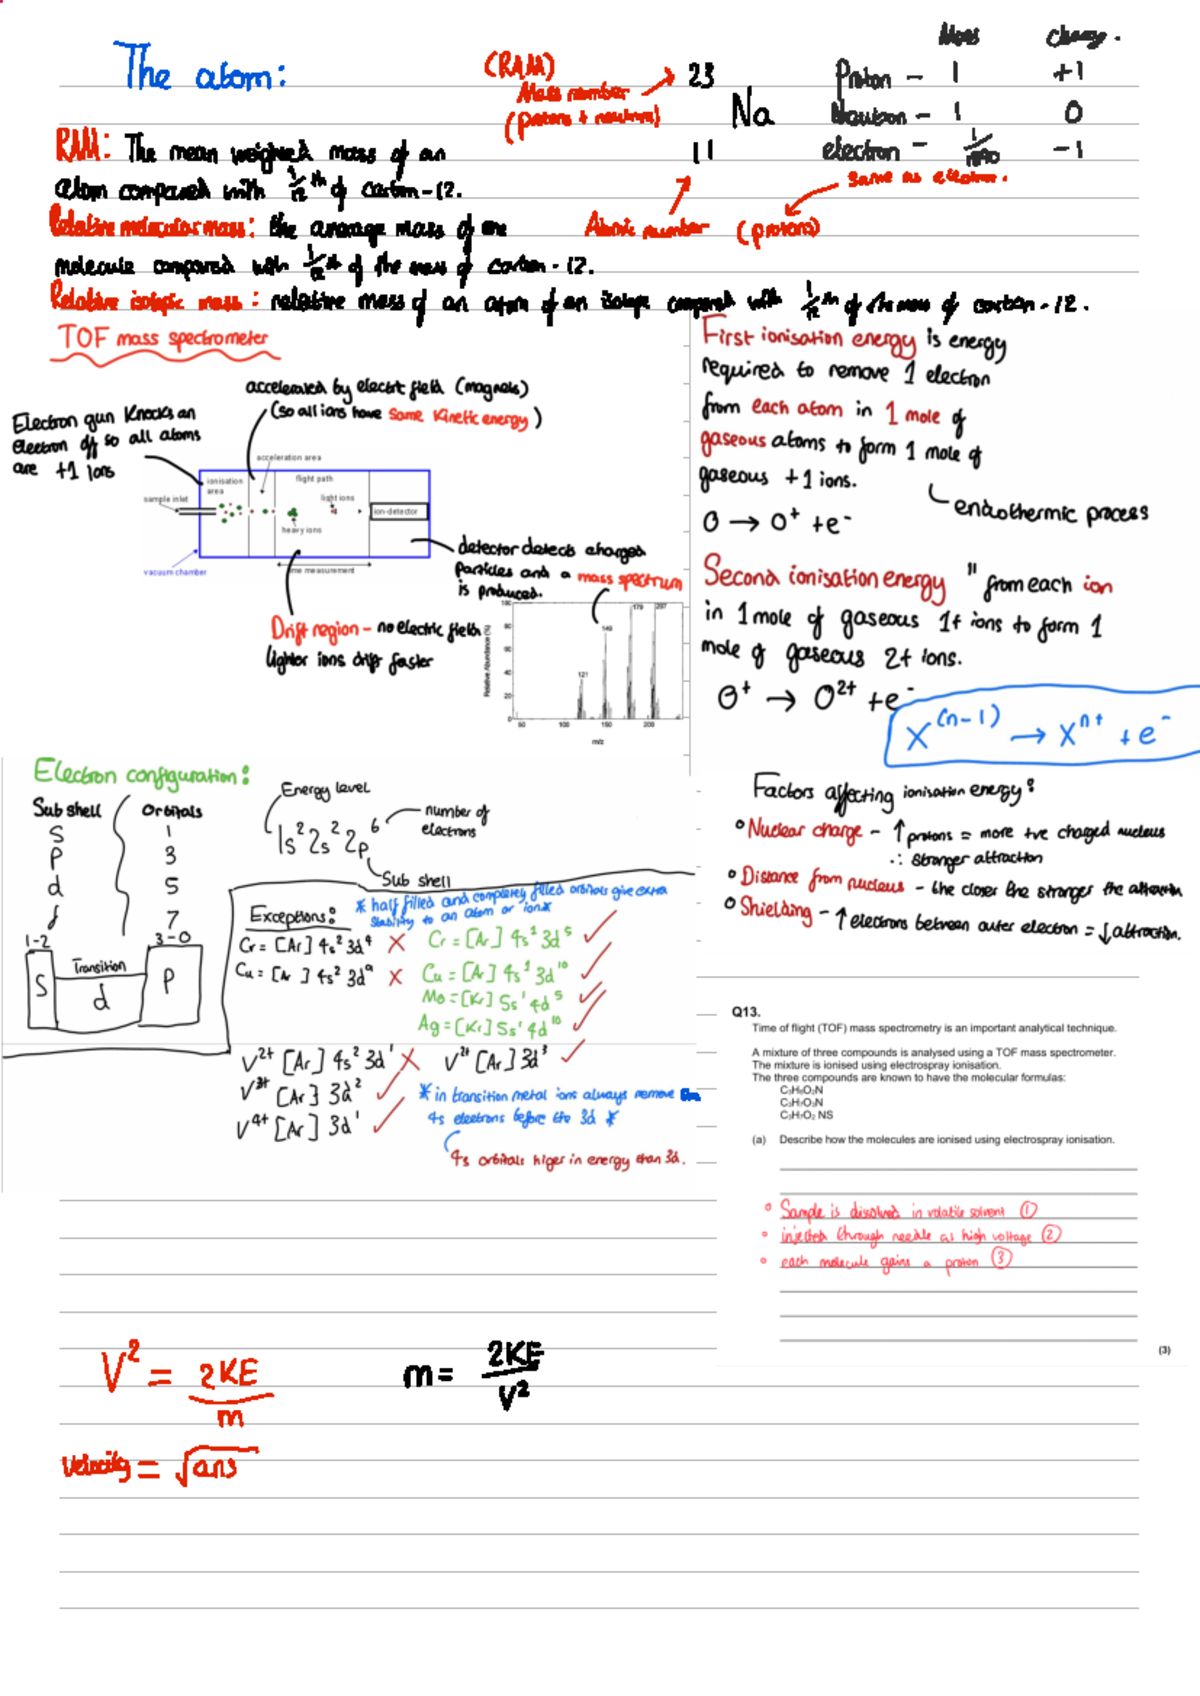 The atom:
(RAM)
Mass number
(protons + neutrons)
23
Na
11
Atomic number (protons)
same as electron.
Mass Charge.
Proton - 1 +1
Neutron - 1 0
electron - -1
RAM: The mean weighted mass of an
atom compared with 1/12th of carbon-12.
Relative molecular mass: the average mass of one
molecule compared with 1/12th of the mass of carbon-12.
Relative isotopic mass: relative mass of an atom of an isotope compared with 1/12th of the mass of carbon-12.
TOF mass spectrometer
accelerated by electrt field (magnets)
(so all ions have same kinetic energy)
Electron gun knocks an
electron off so all atoms
are +1 ions
acceleration area
ionisation
area
flight path
sample inlet
light ions
ion-detector
heavy ions
vacuum chamber
time measurement
detector detects charged
particles and a mass spectrum
is produced.
Drift region - no electric field
lighter ions drift faster
Relative Abundance (%)
100
80
60
40
20
0
121
149
179
207
50 100 150 200
m/z
First ionisation energy is energy
required to remove 1 electron
from each atom in 1 mole of
gaseous atoms to form 1 mole of
gaseous +1 ions.
endothermic process
O → O⁺ + e⁻
Second ionisation energy " from each ion
in 1 mole of gaseous 1+ ions to form 1
mole of gaseous 2+ ions.
O⁺ → O²⁺ + e⁻
X⁽ⁿ⁻¹⁾ → Xⁿ⁺ + e⁻
Electron configuration:
Sub shell Orbitals
S 1
P 3
d 5
f 7
1-2 3-0
S Transition d P
Energy level
1s² 2s² 2p⁶
number of
electrons
Sub shell
Exceptions:
* half filled and completely filled orbitals give extra
stability to an atom or ion *
Cr = [Ar] 4s² 3d⁴ ✗ Cr = [Ar] 4s¹ 3d⁵ ✓
Cu = [Ar] 4s² 3d⁹ ✗ Cu = [Ar] 4s¹ 3d¹⁰ ✓
Mo = [Kr] 5s¹ 4d⁵ ✓
Ag = [Kr] 5s¹ 4d¹⁰ ✓
V²⁺ [Ar] 4s² 3d¹ ✗ V²⁺ [Ar] 3d³ ✓
V³⁺ [Ar] 3d² ✓
V⁴⁺ [Ar] 3d¹ ✓
* in transition metal ions always remove
4s electrons before the 3d *
4s orbitals higer in energy than 3d.
Factors affecting ionisation energy:
Nuclear charge - ↑ protons = more +ve charged nucleus
∴ stronger attraction
Distance from nucleus - the closer the stronger the attraction
Shielding - ↑ electrons between outer electron = ↓ attraction.
Q13.
Time of flight (TOF) mass spectrometry is an important analytical technique.
A mixture of three compounds is analysed using a TOF mass spectrometer.
The mixture is ionised using electrospray ionisation.
The three compounds are known to have the molecular formulas:
C₃H₇O₂N
C₃H₇O₃N
C₃H₇O₂NS
(a) Describe how the molecules are ionised using electrospray ionisation.
Sample is dissolved in volatile solvent ①
injected through needle at high voltage ②
each molecule gains a proton ③
(3)
V² = 2KE/m
m = 2KE/V²
velocity = √ans